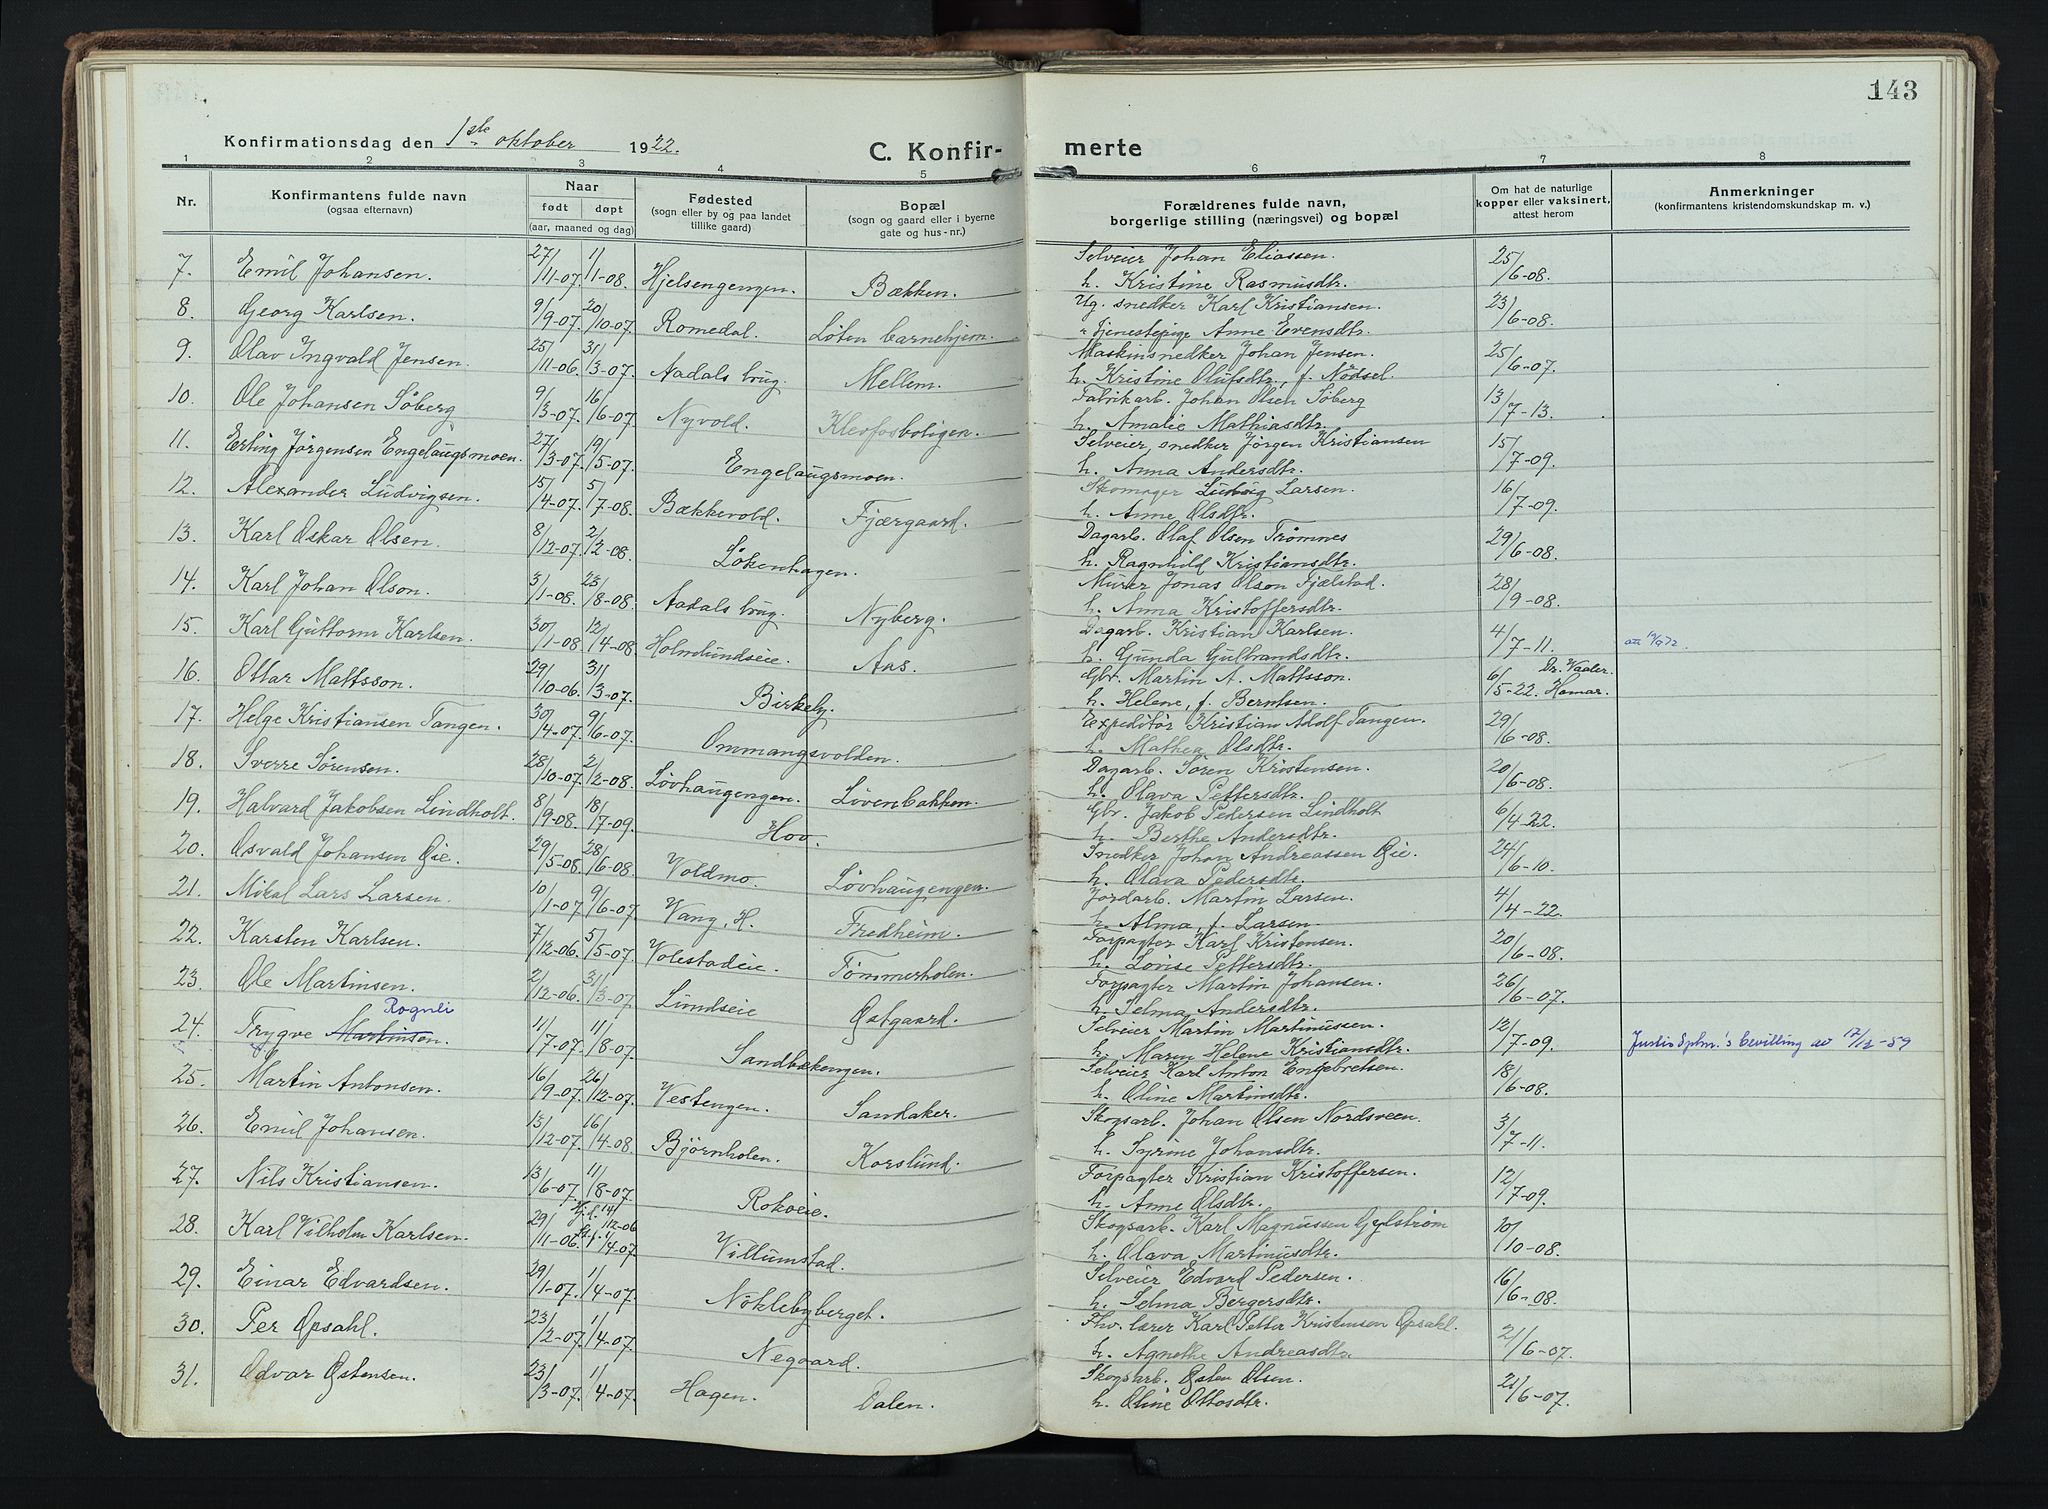 143
Konfirmationsdag den 1ste oktober 1922.
C. Konfirmerte
1 2 3 4 5 6 7 8
Nr.
Konfirmantens fulde navn
(ogsaa efternavn)
Naar
født døpt
(aar, maaned og dag)
Fødested
(sogn eller by og paa landet
tillike gaard)
Bopæl
(sogn og gaard eller i byerne
gate og hus-nr.)
Forældrenes fulde navn,
borgerlige stilling (næringsvei) og bopæl
Om hat de naturlige
kopper eller vaksinert,
attest herom
Anmerkninger
(konfirmantens kristendomskundskap m. v.)
7. Emil Johansen. 27/11-07. 1/1-08. Hjelsengengen. Bækken. Selveier Johan Eliassen. 25/6-08.
h. Kristine Rasmusdtr.
8. Georg Karlsen. 9/9-07. 20/10-07. Romedal. Løten barnehjem. Ug. snedker Karl Kristiansen. 23/6-08.
" Tjenestepige Anne Evensdtr.
9. Olav Ingvald Jensen. 25/11-06. 31/3-07. Aadals brug. Mellem. Maskinsnedker Johan Jensen. 25/6-07.
h. Kristine Olufsdtr., f. Nödsel.
10. Ole Johansen Söberg 9/3-07. 16/6-07. Nyvold. Klevfosboligen. Fabrikarb. Johan Olsen Söberg 13/7-13.
h. Amalie Mathiasdtr.
11. Erling Jörgensen Engelaugsmoen. 27/3-07. 19/5-07. Engelaugsmoen. Selveier, snedker Jörgen Kristiansen 15/7-09.
h. Anna Andersdtr.
12. Alexander Ludvigsen. 15/4-07. 5/7-08. Bækkevold. Fjærgaard. Skomager Ludvig Larsen. 16/7-09.
h. Anne Olsdtr.
13. Karl Oskar Olsen. 8/12-07. 2/2-08. Lökenhagen. Dagarb. Olaf Olsen Trömnes 29/6-08.
h. Ragnhild Kristiansdtr.
14. Karl Johan Olson. 3/1-08. 23/8-08. Aadals brug. Nyberg. Murer Jonas Olson Fjælstad. 28/9-08.
h. Anna Kristoffersdtr.
15. Karl Guttorm Karlsen. 30/1-08. 12/4-08. Holmlundseie. Aas. Dagarb. Kristian Karlsen. 4/7-11.
h. Gunda Gulbrandsdtr.
16. Ottar Mattsson. 29/10-06. 31/3-07. Birkeby. Gbr. Martin A. Mattsson. 6/5-22. Dr. Vaaler. Hamar.
h. Helene, f. Berntsen.
17. Helge Kristiansen Tangen. 30/4-07. 9/6-07. Ommangsvolden. Expeditör Kristian Adolf Tangen. 29/6-08.
h. Mathea Olsdtr.
18. Sverre Sörensen. 28/10-07. 2/2-08. Lövhaugengen. Lövenbakken. Dagarb. Sören Kristensen. 20/6-08.
h. Olava Pettersdtr.
19. Halvard Jakobsen Lindholt. 8/9-08. 18/7-09. Hov. Gbr. Jakob Pedersen Lindholt 6/4-22.
h. Berthe Andersdtr.
20. Osvald Johansen Øie. 29/5-08. 28/6-08. Voldmo. Lövhaugengen. Snedker Johan Andreassen Øie. 24/6-10.
h. Olava Pedersdtr.
21. Mikal Lars Larsen. 10/1-07. 9/6-07. Vang, H. Fredheim. Jordarb. Martin Larsen. 4/4-22.
h. Alma, f. Larsen.
22. Karsten Karlsen. 7/12-06. 5/5-07. Volestadeie. Tömmerholen. Forpagter Karl Kristensen. 20/6-08.
h. Lovise Pettersdtr.
23. Ole Martinsen. 2/12-06. 31/3-07. Lundseie Østgaard. Forpagter Martin Johansen. 26/6-07.
h. Selma Andersdtr.
Rogneli
24. Trygve Martinsen. 11/7-07. 11/8-07. Sandbækengen. Selveier Martin Martinussen. 12/7-09. Justisdptm.'s bevilling av 17/12-59
h. Maren Helene Kristiansdtr.
25. Martin Antonsen. 16/9-07. 26/12-07. Vestengen. Sandaker. Selveier Karl Anton Engebretsen. 18/6-08.
h. Oline Martinsdtr.
26. Emil Johansen. 13/12-07. 16/4-08. Björnholen. Korslund. Skogsarb. Johan Olsen Nordsveen. 3/7-11.
h. Syrine Johansdtr.
27. Nils Kristiansen. 13/6-07. 11/8-07. Rokoeie. Forpagter Kristian Kristoffersen. 12/7-09.
h. Anne Olsdtr.
28. Karl Vilhelm Karlsen. 29/11-06. Hjd. 14/12-06 1/4-07. Villumstad. Skogsarb. Karl Magnussen Gylström 20/10-08.
h. Olava Martinusdtr.
29. Einar Edvardsen. 29/1-07. 1/4-07. Nöklebyberget. Selveier Edvard Pedersen. 16/6-08.
h. Selma Bergersdtr.
30. Per Opsahl. 23/2-07. 1/4-07. Negaard. Fhv. lærer Karl Petter Kristensen Opsahl. 21/6-07.
h. Agnethe Andreasdtr.
31. Odvar Østensen. 23/3-07. 1/4-07. Hagen. Dalen. Skogsarb. Østen Olsen. 21/6-07.
h. Oline Ottosdtr.